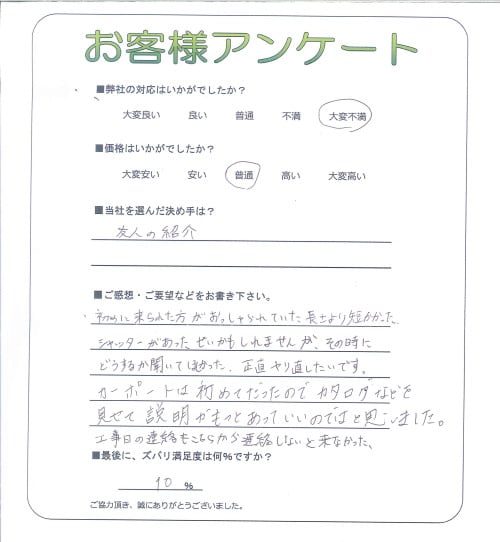 お客様アンケート
■弊社の対応はいかがでしたか？
大変良い 良い 普通 不満 大変不満
■価格はいかがでしたか？
大変安い 安い 普通 高い 大変高い
■当社を選んだ決め手は？
友人の紹介
■ご感想・ご要望などをお書き下さい。
初めに来られた方がおっしゃられていた長さより短かかった、
シャッターがあったせいかもしれませんが、その時に
どうするか聞いてほしかった、正直やり直したいです。
カーポートは初めてだったのでカタログなどを
見せて説明がもっとあっていいのではと思いました。
工事日の連絡もこちらから連絡しないと来なかった、
■最後に、ズバリ満足度は何%ですか？
10 %
ご協力頂き、誠にありがとうございました。